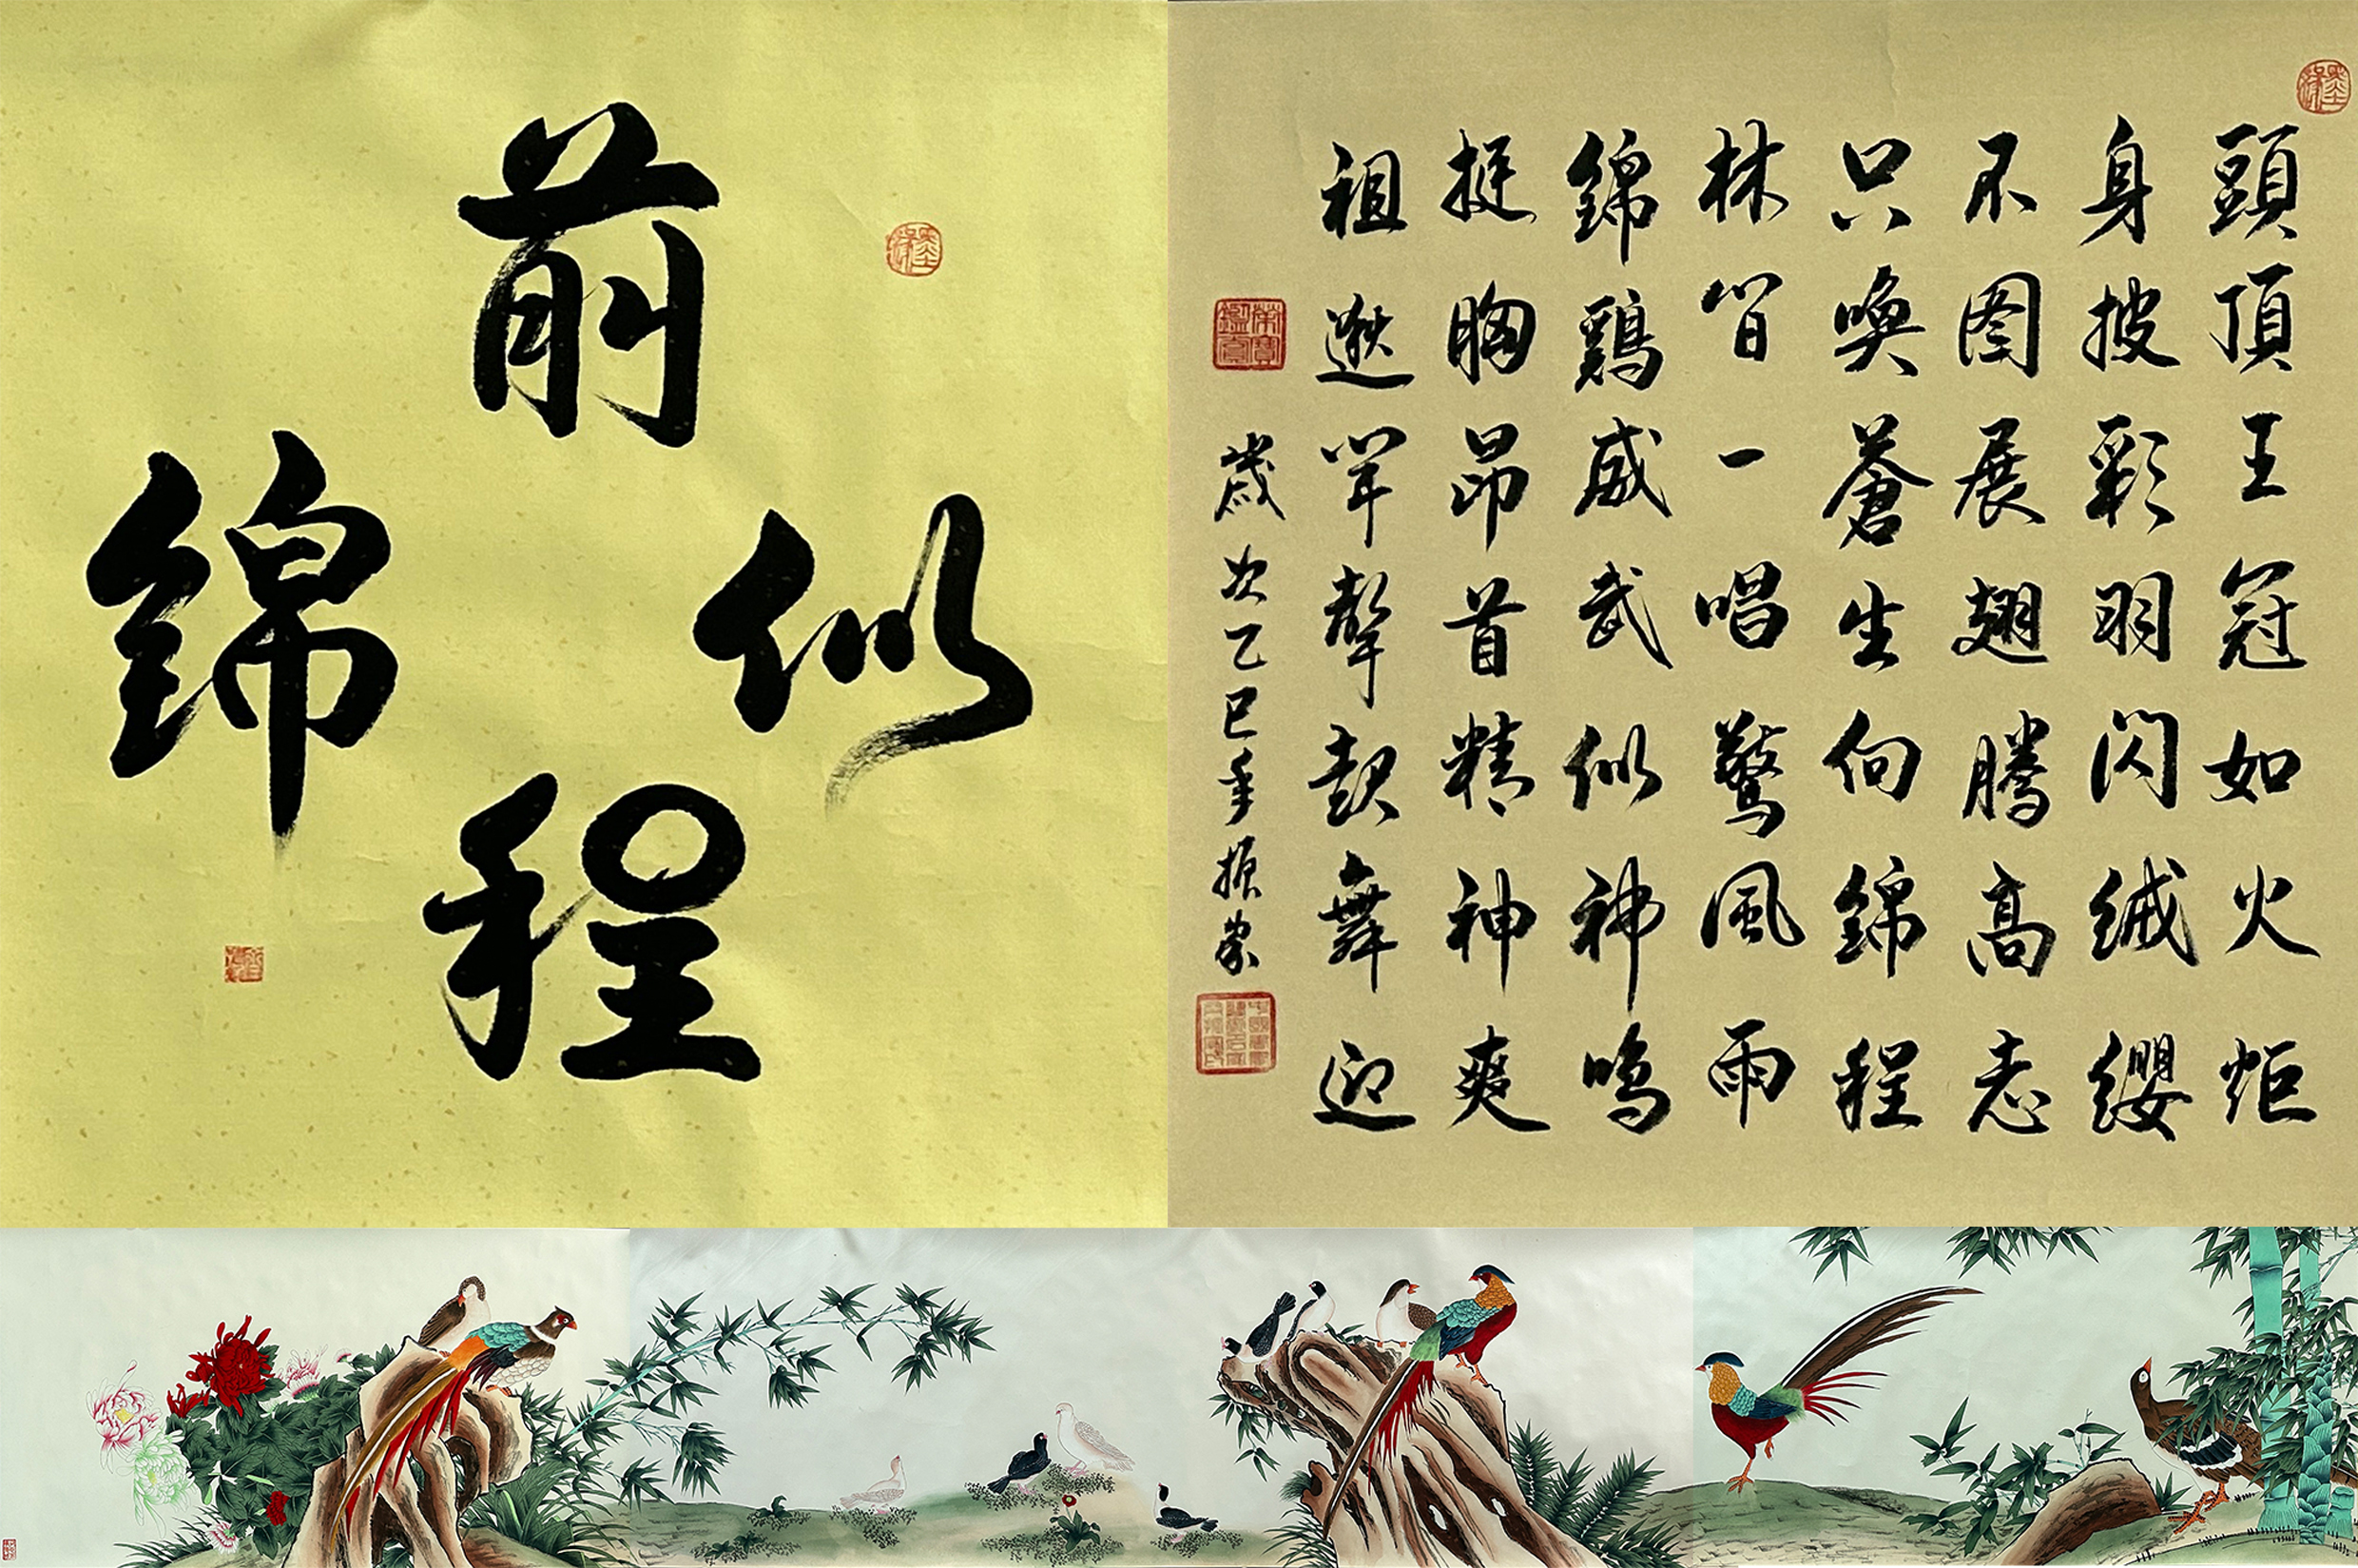 前程似錦
頭頂王冠如火炬
身披彩羽閃絨纓
不图展翅騰高志
只喚蒼生向錦程
林間一唱驚風雨
錦鷄威武似神鳴
挺胸昂首精神爽
祖逖聞聲鼓舞迎
歲次乙巳年振蒙